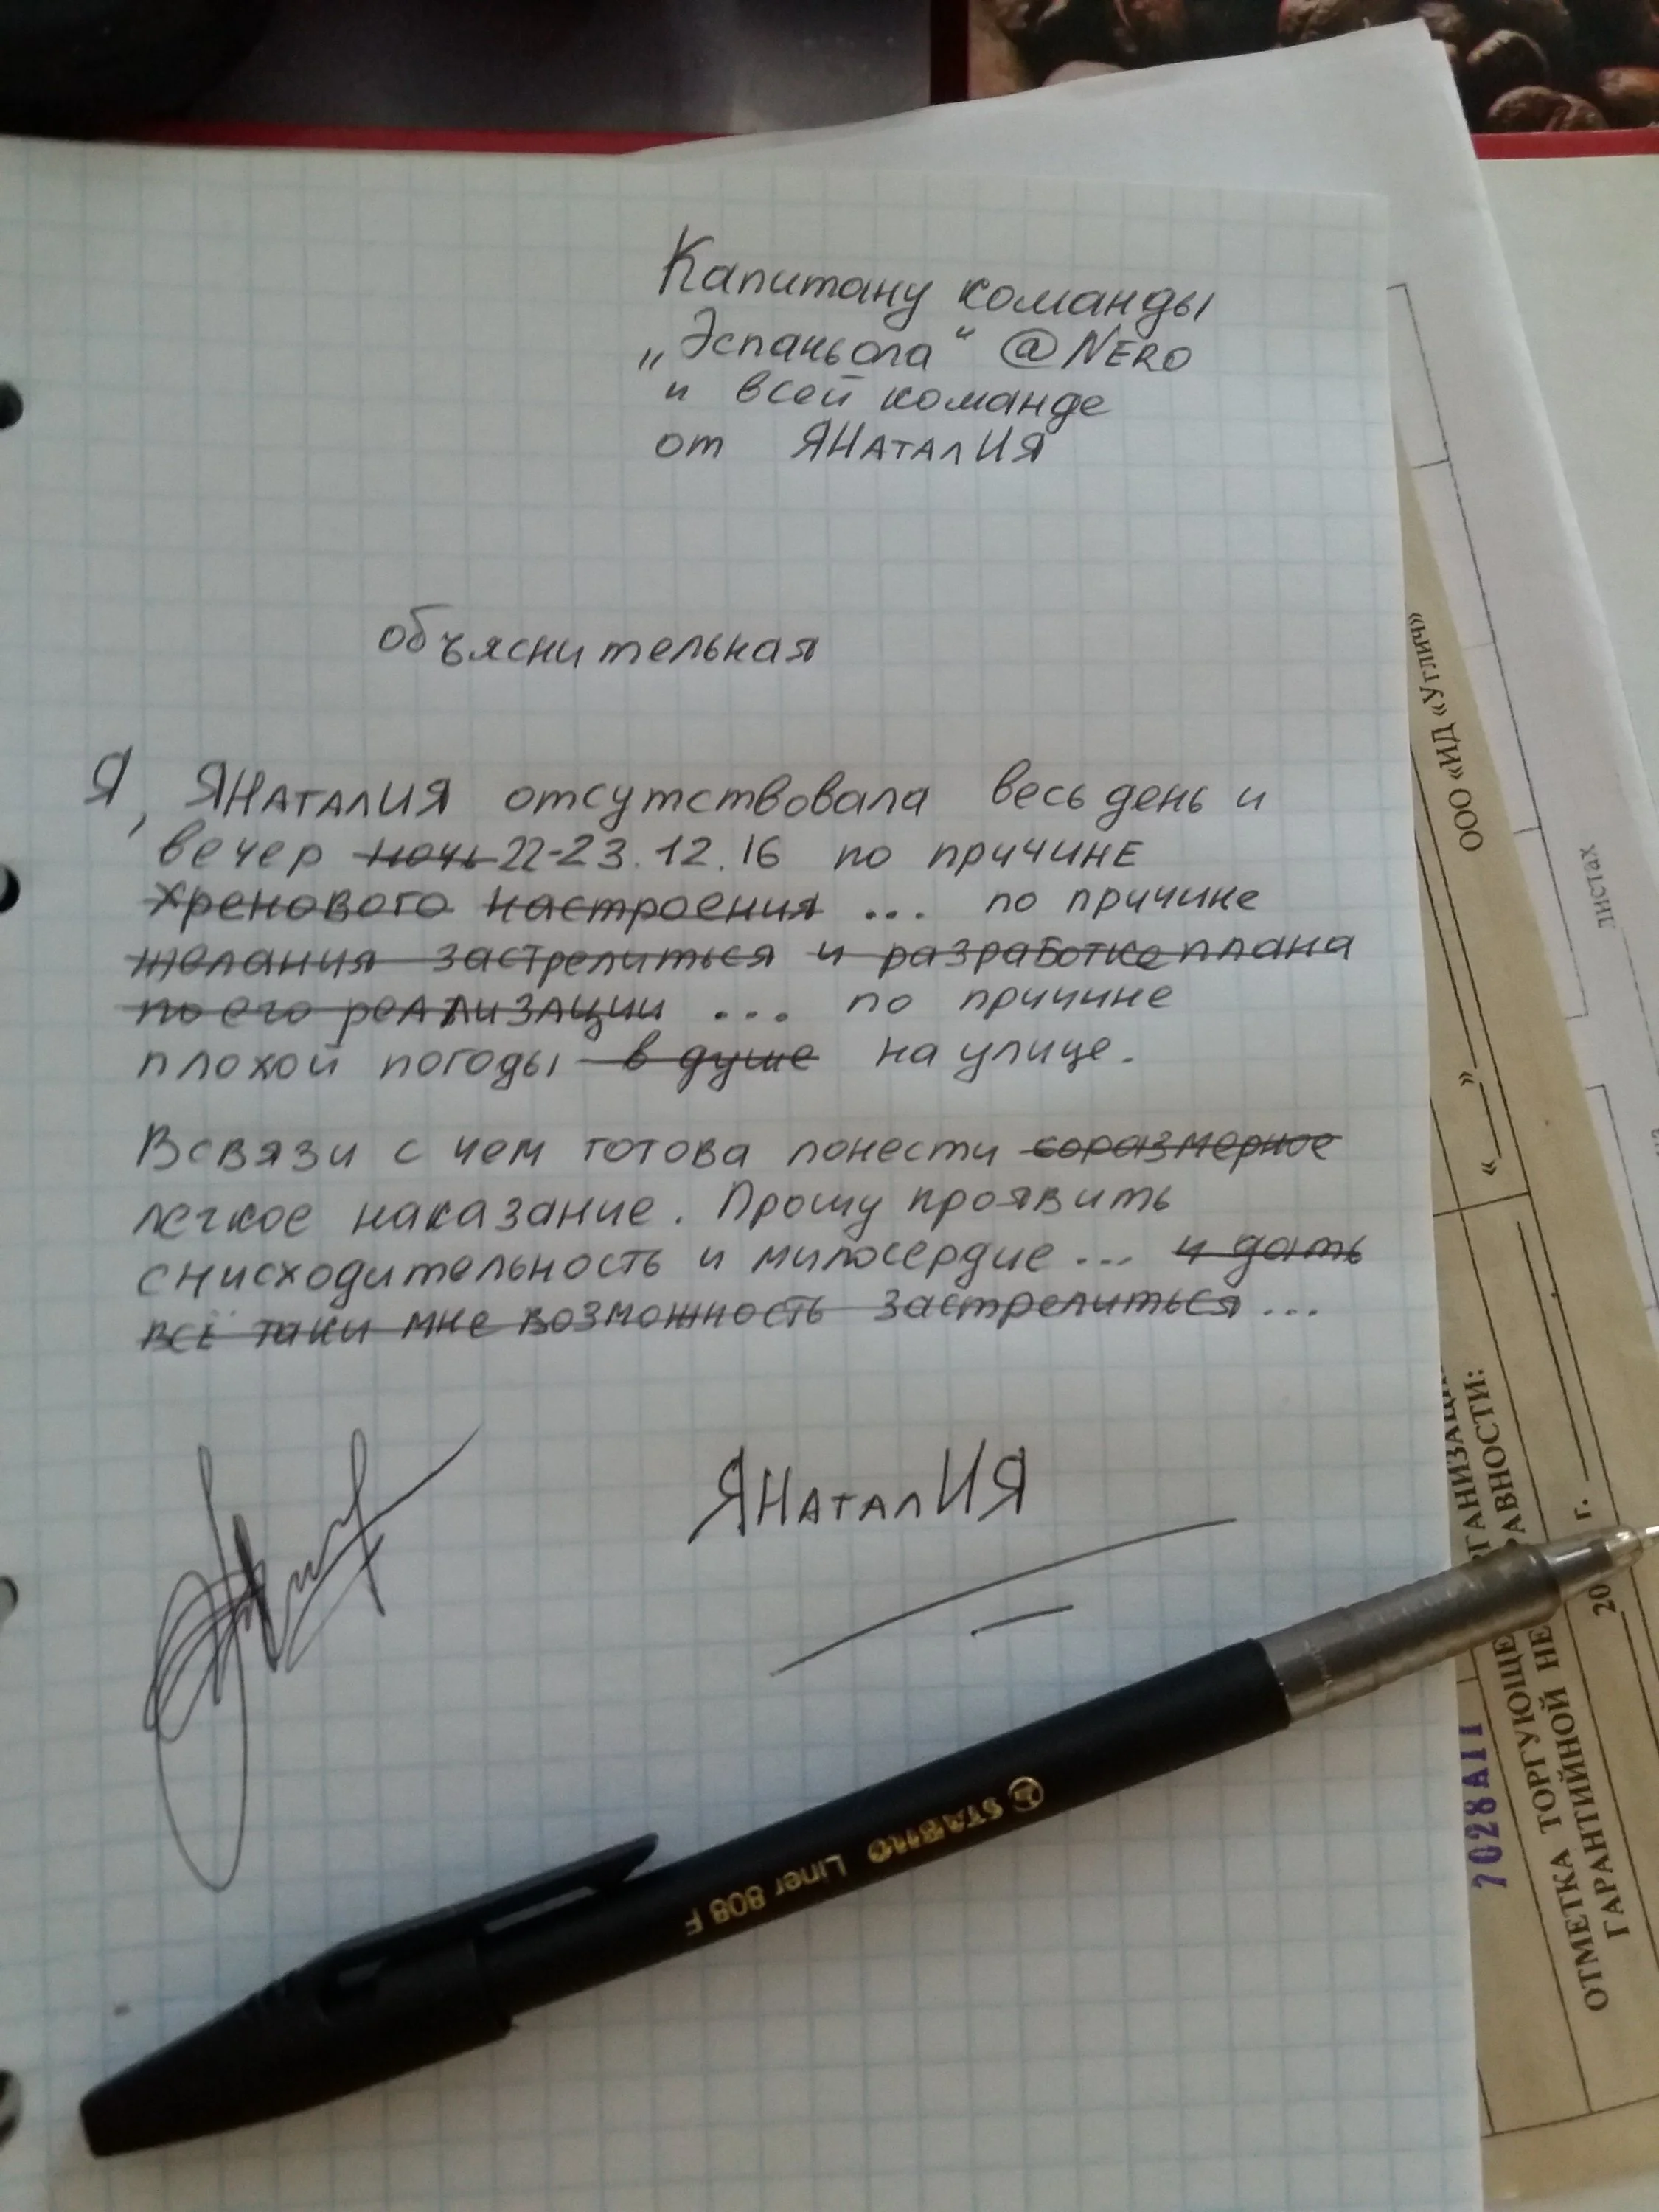 Капитану команды
„Эспаньола“ @NERO
и всей команде
от ЯНАТАЛИЯ
объяснительная
Я, ЯНАТАЛИЯ отсутствовала весь день и
вечер ночь 22-23.12.16 по причине
хренового настроения ... по причине
желания застрелиться и разработке плана
по его реализации ... по причине
плохой погоды в душе на улице.
В связи с чем готова понести соразмерное
легкое наказание. Прошу проявить
снисходительность и милосердие ... и дать
всё таки мне возможность застрелиться ...
ЯНАТАЛИЯ
STABILO Liner 808 F
ООО «ИД «Углич»
листах
«___»
20 г.
РАВНОСТИ:
ОТМЕТКА ТОРГУЮЩЕ
ГАРАНТИЙНОЙ НЕ
7028А11